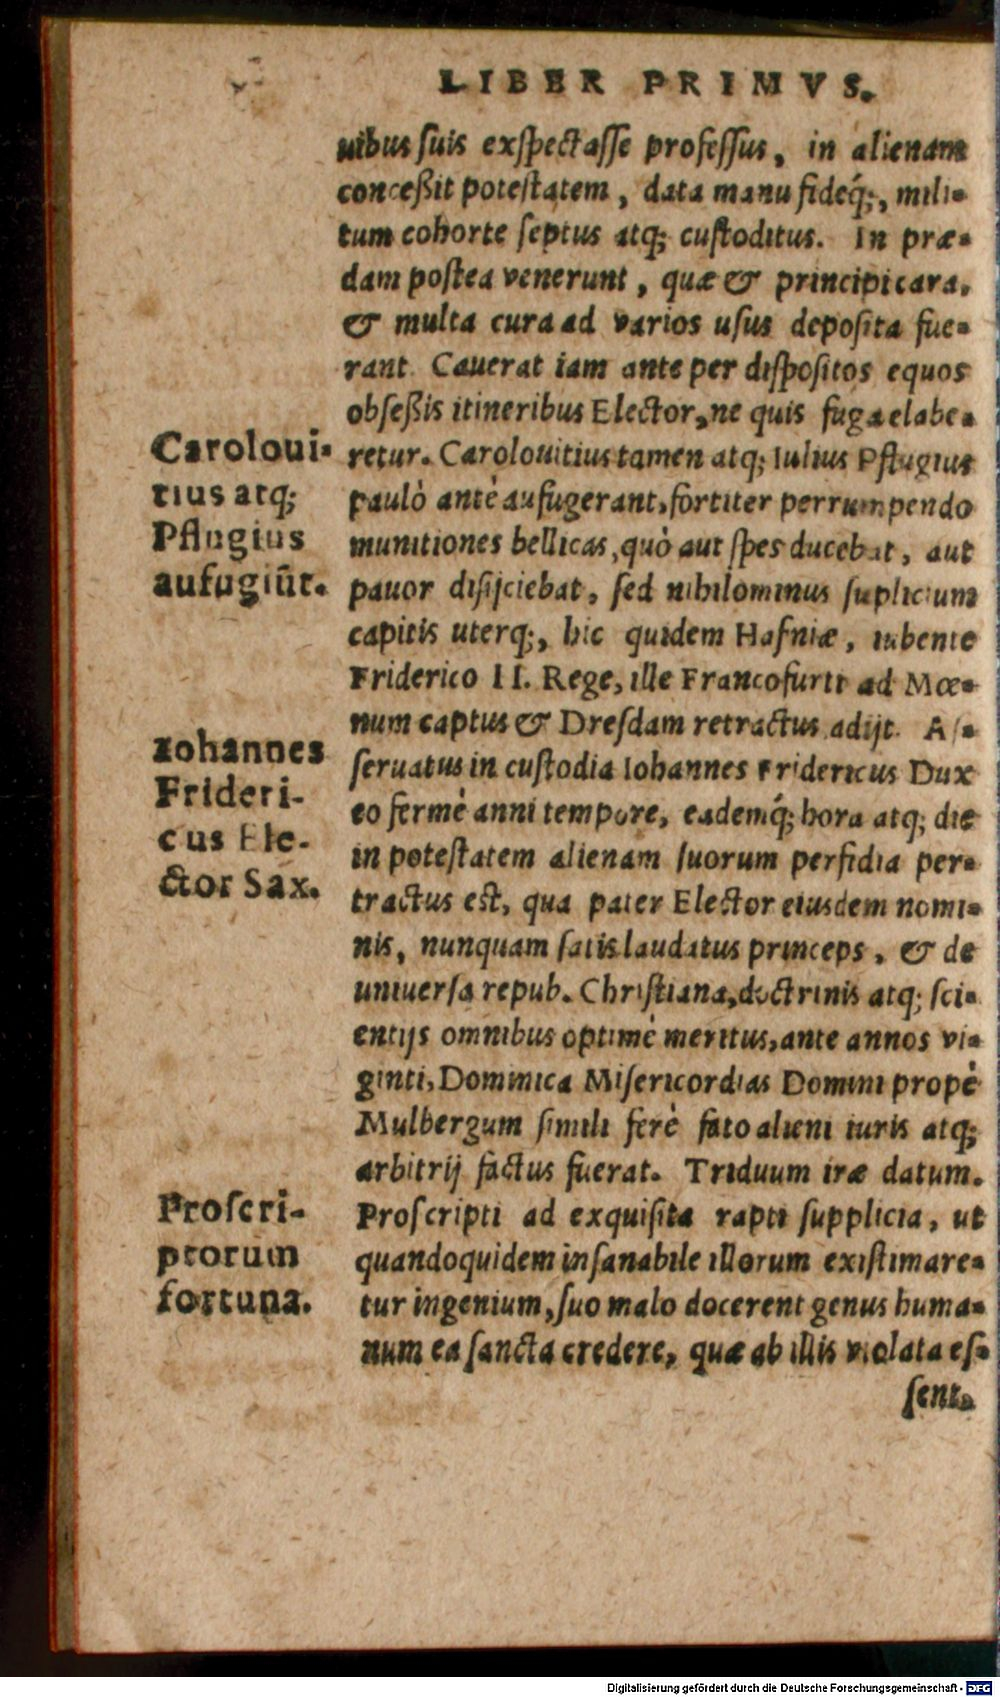 LIBER PRIMVS.
uibus suis exspectasse professus, in alienam
conceßit potestatem, data manu fideq́;, mili-
tum cohorte septus atq; custoditus. In præ-
dam postea venerunt, quæ & principi cara,
& multa cura ad varios usus deposita fue-
rant. Cauerat iam ante per dispositos equos
obseßis itineribus Elector, ne quis fuga elabe-
Caroloui-
tius atq;
Pflugius
aufugiũt.
retur. Carolouitius tamen atq; Iulius Pflugius
paulò antè aufugerant, fortiter perrumpendo
munitiones bellicas, quò aut spes ducebat, aut
pauor disijciebat, sed nihilominus suplicium
capitis uterq;, hic quidem Hafniæ, iubente
Friderico II. Rege, ille Francofurti ad Mœ-
num captus & Dresdam retractus adijt. As-
Iohannes
Frideri-
cus Ele-
ctor Sax.
seruatus in custodia Iohannes Fridericus Dux
eo fermè anni tempore, eademq́; hora atq; die
in potestatem alienam suorum perfidia per-
tractus est, qua pater Elector eiusdem nomi-
nis, nunquam satis laudatus princeps, & de
uniuersa repub. Christiana, doctrinis atq; sci-
entijs omnibus optimè meritus, ante annos vi-
ginti, Dominica Misericordias Domini propè
Mulbergum simili ferè fato alieni iuris atq;
arbitrij factus fuerat. Triduum iræ datum.
Proscri-
ptorum
fortuna.
Proscripti ad exquisita rapti supplicia, ut
quandoquidem insanabile illorum existimare-
tur ingenium, suo malo docerent genus huma-
num ea sancta credere, quæ ab illis violata es-
sent.
Digitalisierung gefördert durch die Deutsche Forschungsgemeinschaft - DFG